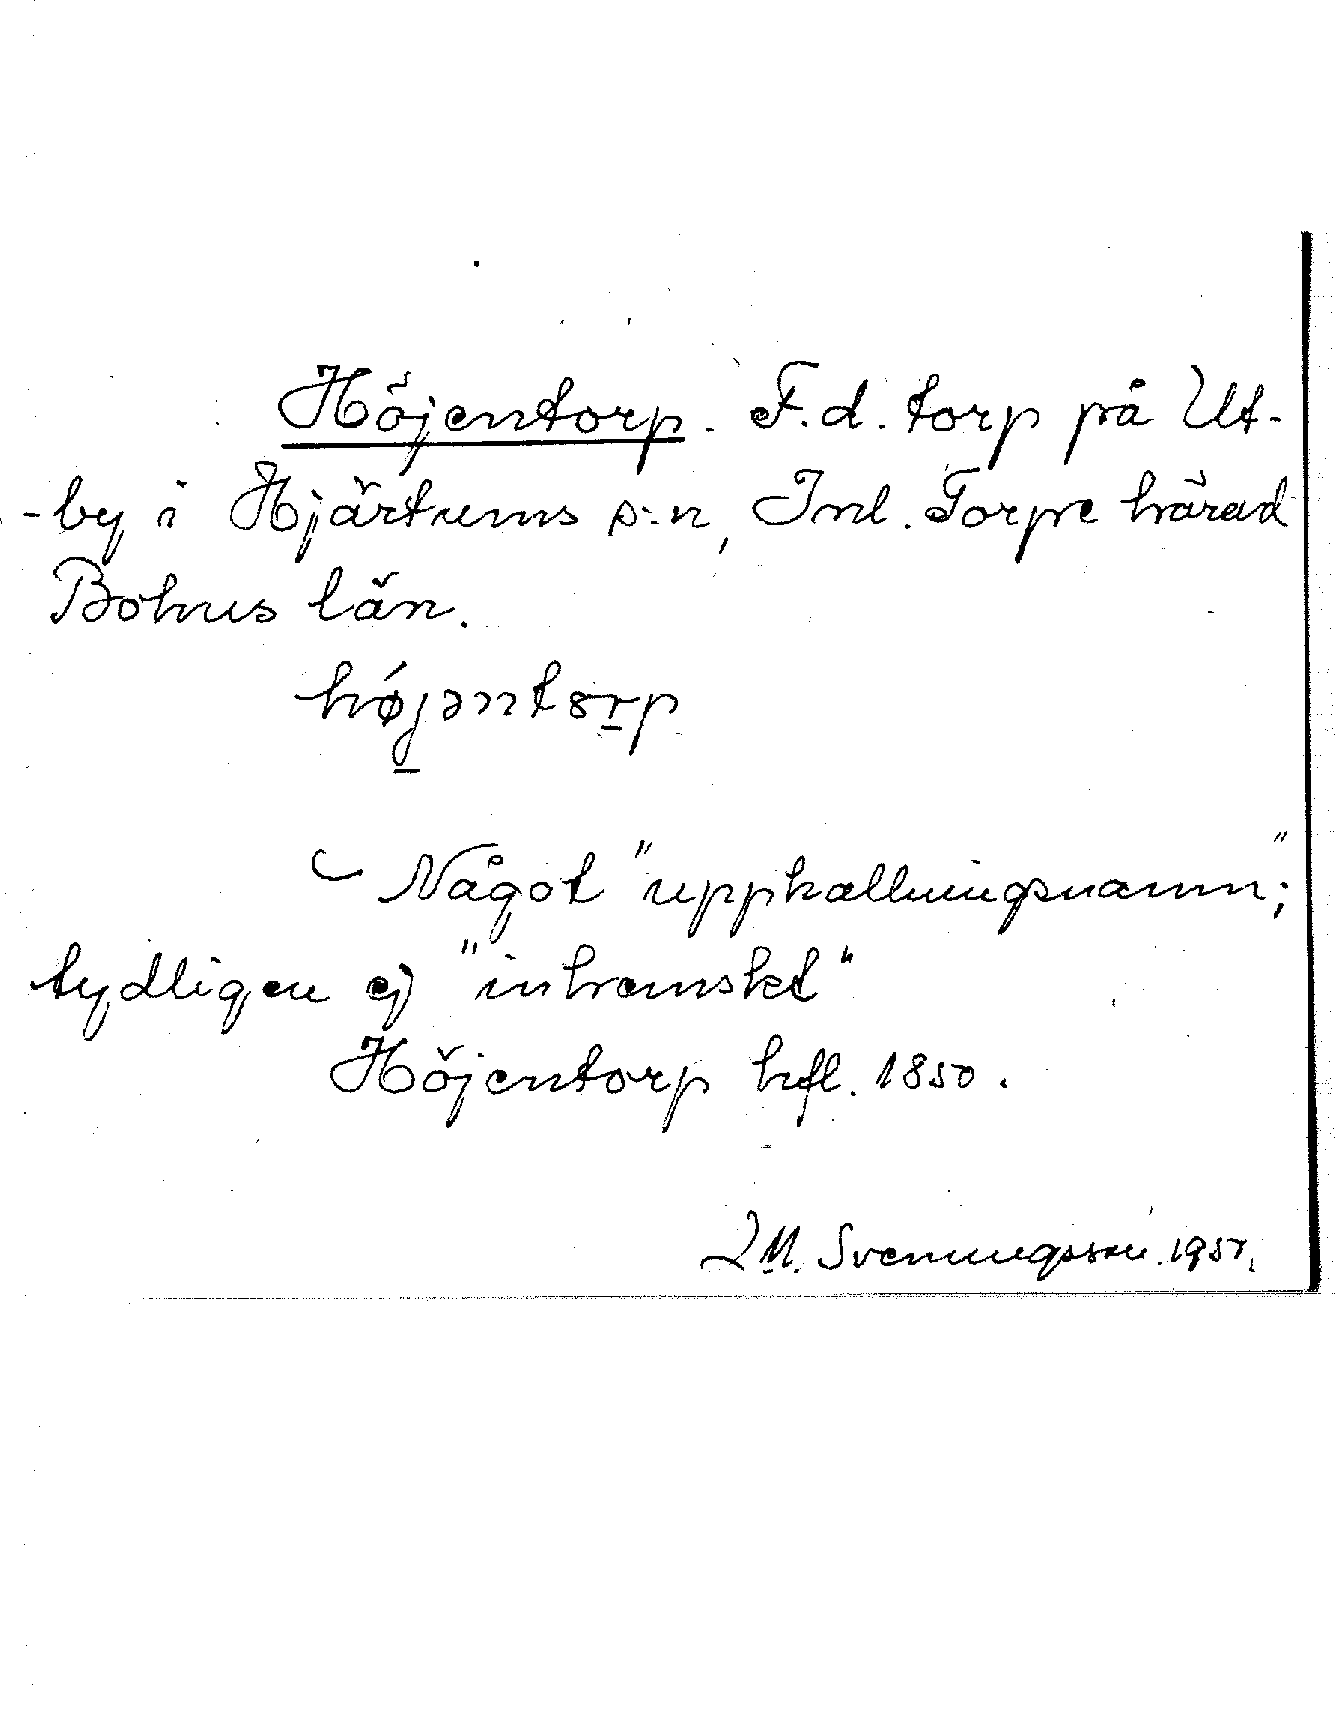 Höjentorp. F.d. torp på Ut-
-by i Hjärtums s:n, Inl. Torpe härad
Bohus län.
højəntorp
Något "uppkallningsnamn";
tydligen ej "inhemskt"
Höjentorp hfl. 1850.
Svenningsson. 1951.